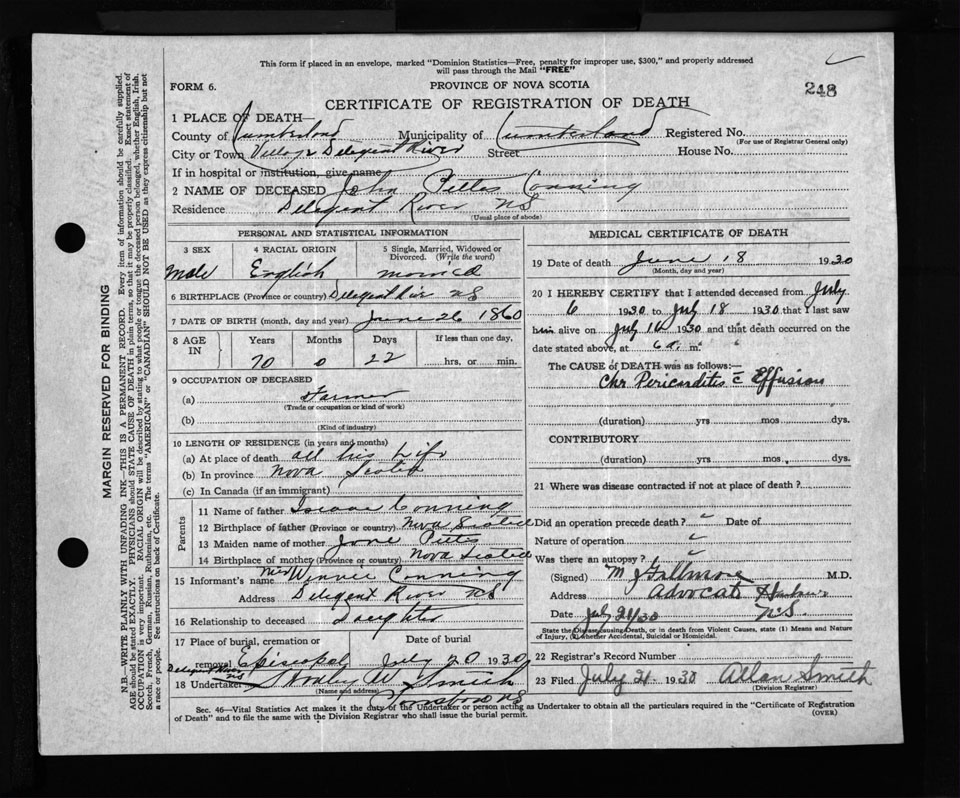 This form if placed in an envelope, marked "Dominion Statistics—Free, penalty for improper use, $300," and properly addressed
will pass through the Mail "FREE"
FORM 6.
PROVINCE OF NOVA SCOTIA
248
CERTIFICATE OF REGISTRATION OF DEATH
1 PLACE OF DEATH—
County of Cumberland Municipality of Cumberland Registered No.
(For use of Registrar General only)
City or Town Village Diligent River Street House No.
If in hospital or institution, give name
2 NAME OF DECEASED John Pettes Conning
Residence Diligent River NS
(Usual place of abode)
PERSONAL AND STATISTICAL INFORMATION
3 SEX 4 RACIAL ORIGIN 5 Single, Married, Widowed or
Divorced. (Write the word)
Male English married
6 BIRTHPLACE (Province or country) NS
7 DATE OF BIRTH (month, day and year) June 26 1860
8 AGE IN Years Months Days If less than one day,
70 0 22 hrs. or min.
9 OCCUPATION OF DECEASED
(a) Farmer
(Trade or occupation or kind of work)
(b)
(Kind of industry)
10 LENGTH OF RESIDENCE (in years and months)
(a) At place of death all his life
(b) In province Nova Scotia
(c) In Canada (if an immigrant)
Parents
11 Name of father Isaac Conning
12 Birthplace of father (Province or country) Nova Scotia
13 Maiden name of mother Jane Pettes
14 Birthplace of mother (Province or country) Nova Scotia
15 Informant's name Mrs Winnee Conning
Address Diligent River NS
16 Relationship to deceased Daughter
17 Place of burial, cremation or Date of burial
removal Episcopal July 20 1930
18 Undertaker W Smith
(Name and address)
NS
MEDICAL CERTIFICATE OF DEATH
19 Date of death June 18 1930
(Month, day and year)
20 I HEREBY CERTIFY that I attended deceased from July
6 1930 to July 18 1930 that I last saw
him alive on July 16 1930 and that death occurred on
date stated above, at 6 a. m.
The CAUSE OF DEATH was as follows:—
Chr Pericarditis c̄ Effusion
(duration) yrs mos. dys.
CONTRIBUTORY
(duration) yrs mos. dys.
21 Where was disease contracted if not at place of death?
Did an operation precede death? Date of
Nature of operation
Was there an autopsy?
(Signed) M Gillmore M.D.
Address Advocate Harbour
Date July 21/30 N.S.
State the Disease causing Death, or in death from Violent Causes, state (1) Means and Nature
of Injury, (2) whether Accidental, Suicidal or Homicidal.
22 Registrar's Record Number
23 Filed July 21 1930 Allan Smith
(Division Registrar)
Sec. 46—Vital Statistics Act makes it the duty of the Undertaker or person acting as Undertaker to obtain all the particulars required in the "Certificate of Registration
of Death" and to file the same with the Division Registrar who shall issue the burial permit.
(OVER)
MARGIN RESERVED FOR BINDING
N.B.—WRITE PLAINLY WITH UNFADING INK—THIS IS A PERMANENT RECORD. Every item of information should be carefully supplied.
AGE should be stated EXACTLY. PHYSICIANS should STATE CAUSE OF DEATH in plain terms, so that it may be properly classified. Exact statement of
OCCUPATION is very important. RACIAL ORIGIN will be described by stating to what people or tongue the deceased person belonged, whether English, Irish,
Scotch, French, German, Russian, Ruthenian, etc. The terms "AMERICAN" or "CANADIAN" SHOULD NOT BE USED as they express citizenship but not
a race or people. See instructions on back of Certificate.